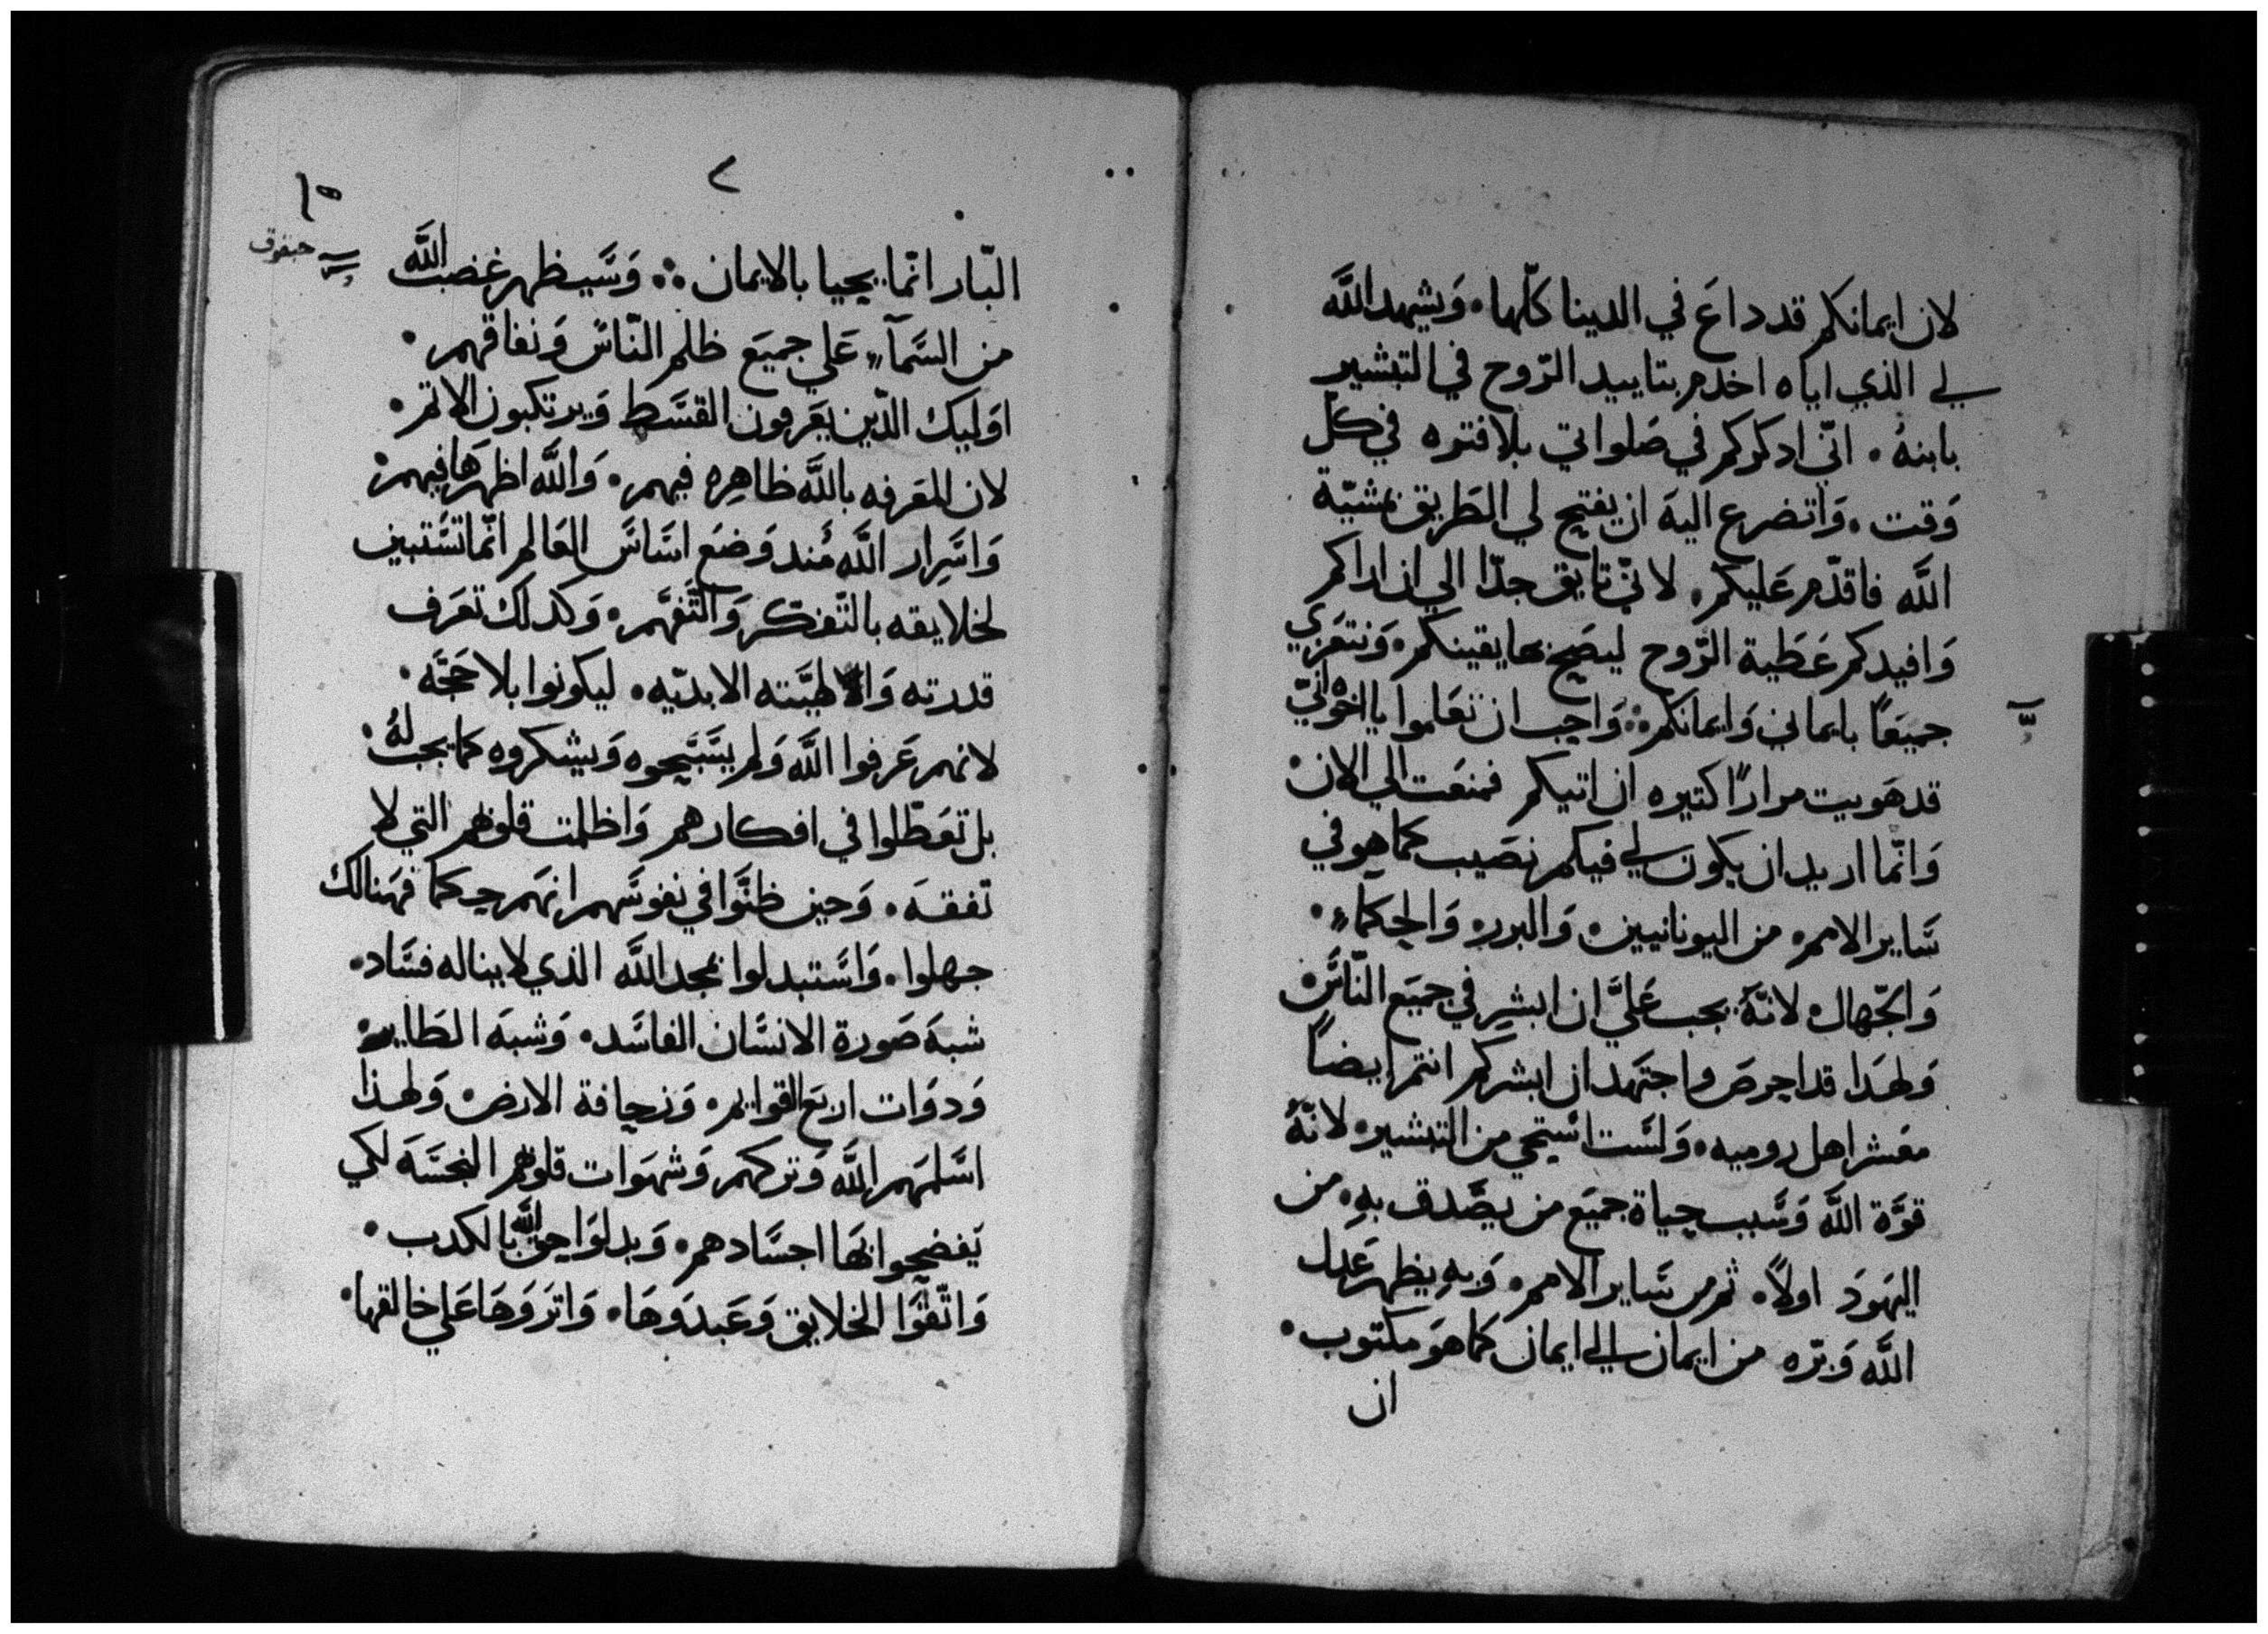 لان ايمانكم قد داع في الدينا كلّها . وَيشهد اللَّه
لي الذي اياه اخدم بتاييد الرّوح في التبشير
بابنهُ . انّي ادكركم في صَلواتي بلا فتره في كلّ
وَقت . وَاتضرع اليهَ ان يفتح لي الطَريق بمشيّة
اللَّه فاقدّم عَليكم . لانّي تايق جدّا الي ان اراكم
وَافيدكم عَطَية الرّوح ليصَح بها يقينكم . وَنتعَزي
جميَعًا بايماني وَايمانكم ؞ وَاجب ان تعَلموا يا اخوَاني
قد هَويت مرارًا كتيره ان اتيكم فمنعَت الي الان .
وَانّما اريد ان يكون لي فيكم نصَيب كما هو في
سَاير الامم . من اليونانيين . وَالبربر . وَالحكماء .
وَالجّهال . لانّهُ يجب عَليَّ ان ابشر في جميَع النّاسَ .
وَلهَدا قد احرصَ واجتهَد ان ابشركم انتم ايضاً
معَشر اهل روميه . وَلسَت اسَتحي من التبشير . لانّهُ
قوَّة اللَّه وَسَبب حياة جميَع من يصَّدق بهِ . من
اليهَودَ اولاً . ثم من سَاير الامم . وَبهِ يظهر عَدل
اللَّه وَبرّه من ايمان الي ايمان كما هوَ مكتوب .
ان
٢
١٥
حبقوق
البّار انّما يحيا بالايمان ؞ وَسَيظهر غضب اللَّه
من السَّمآء عَلي جميَع ظلم النّاسَ وَنفاقهم .
اوَليك الدّين يعَرفون القسَط وَيرتكبون الاتم .
لان المعَرفه باللَّه ظاهِره فيهم . وَاللَّه اظهرَها فيهم .
وَاسَرِار اللَّه مُند وَضعَ اسَاسَ العَالم انّما تسَتبين
لخلايقه بالتّفكّر وَالتَّفهَّم . وَكدلك تعَرف
قدرته وَالاهيَّته الابديّه . ليكونوا بلا حَجَّه .
لانهم عَرفوا اللَّه وَلم يسَبَّحوه وَيشكروه كما يجب لهُ .
بل تعَطّلوا في افكارهم وَاظلمت قلوبهم التي لا
تفقهَ . وَحين ظنَّوا في نفوسَهم انهَم حكما فهَنالك
جهلوا . وَاسَتبدلوا بمجد اللَّه الذي لا يناله فسَاد .
شبهَ صَورة الانسَان الفاسَد . وَشبهَ الطَاير .
وَدوَات اربَع القوايم . وَزحافة الارض . وَلهذا
اسَلمَهم اللَّه وَتركهم وَشهَوات قلوبهم النجسَهَ لكي
يَفضحوا بهَا اجسَادهم . وَبدلوَا حق اللَّه بالكدب .
وَاتّقوَا الخلايق وَعَبدَوهَا . وَاترَوَهَا عَلي خالقها .